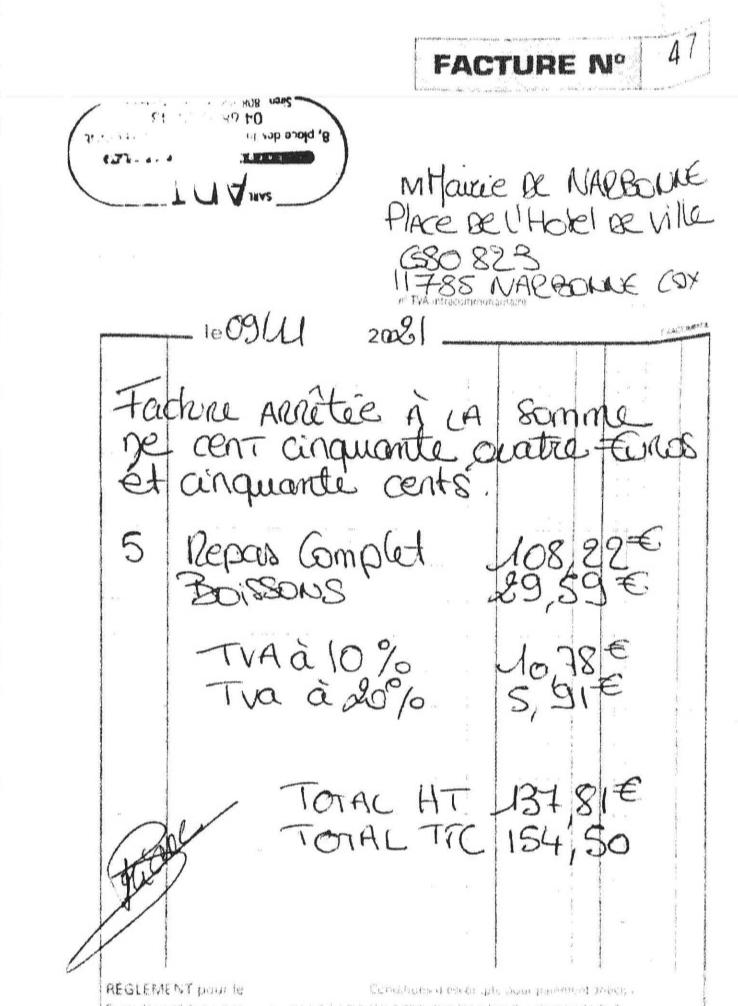 FACTURE N° 47
SARL
8, place des
04
Siren
MMairie De NARBONNE
Place De l'Hotel De ville
CS80 823
11785 NARBONNE CDX
n° TVA intracommunautaire
le 09/11 2021
Facture Arrêtée À LA somme
De cent cinquante quatre Euros
et cinquante cents.
5 Repas Complet 108,22€
BOISSONS 29,59€
TVA à 10% 10,78€
Tva à 20% 5,91€
TOTAL HT 137,81€
TOTAL TTC 154,50
REGLEMENT pour le